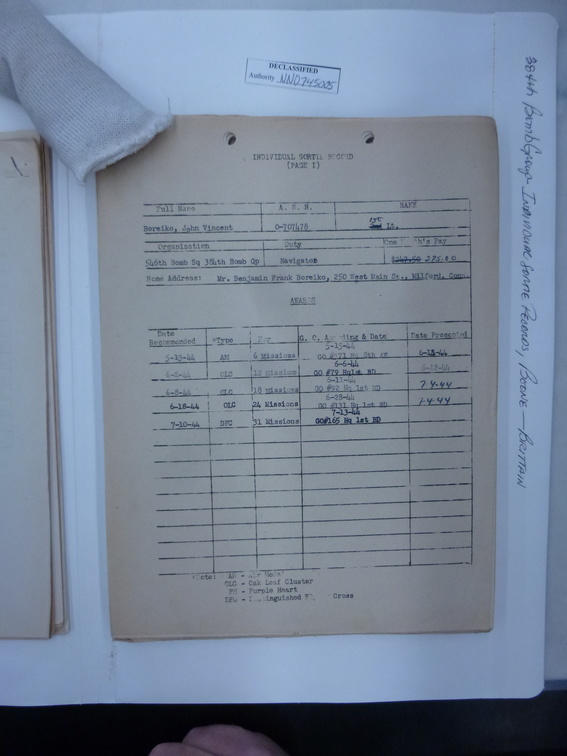 DECLASSIFIED
Authority NND745005
384th Bomb Group - Individual Sortie Records, Boone - Brittain
INDIVIDUAL SORTIE RECORD
(PAGE 1)
Full Name A. S. N. RANK
Boreiko, John Vincent 0-707478 1st Lt.
Organization Duty One h's Pay
546th Bomb Sq 384th Bomb Gp Navigator 275.00
Home Address: Mr. Benjamin Frank Boreiko, 250 West Main St., Milford, Conn.
AWARDS
Date Recommended Type For G. O. Awarding & Date Date Presented
5-15-44
5-13-44 AM 6 Missions
6-6-44
OLC 12 Missions GO #79 Hq 1st BD
6-11-44
6-8-44 OLC 18 Missions GO #92 Hq 1st BD 7-4-44
6-28-44
6-18-44 OLC 24 Missions GO #131 Hq 1st BD
7-13-44
7-10-44 DFC 31 Missions GO#165 Hq 1st BD
Note: AM - Air Medal
OLC - Oak Leaf Cluster
PH - Purple Heart
DFC - Distinguished Cross